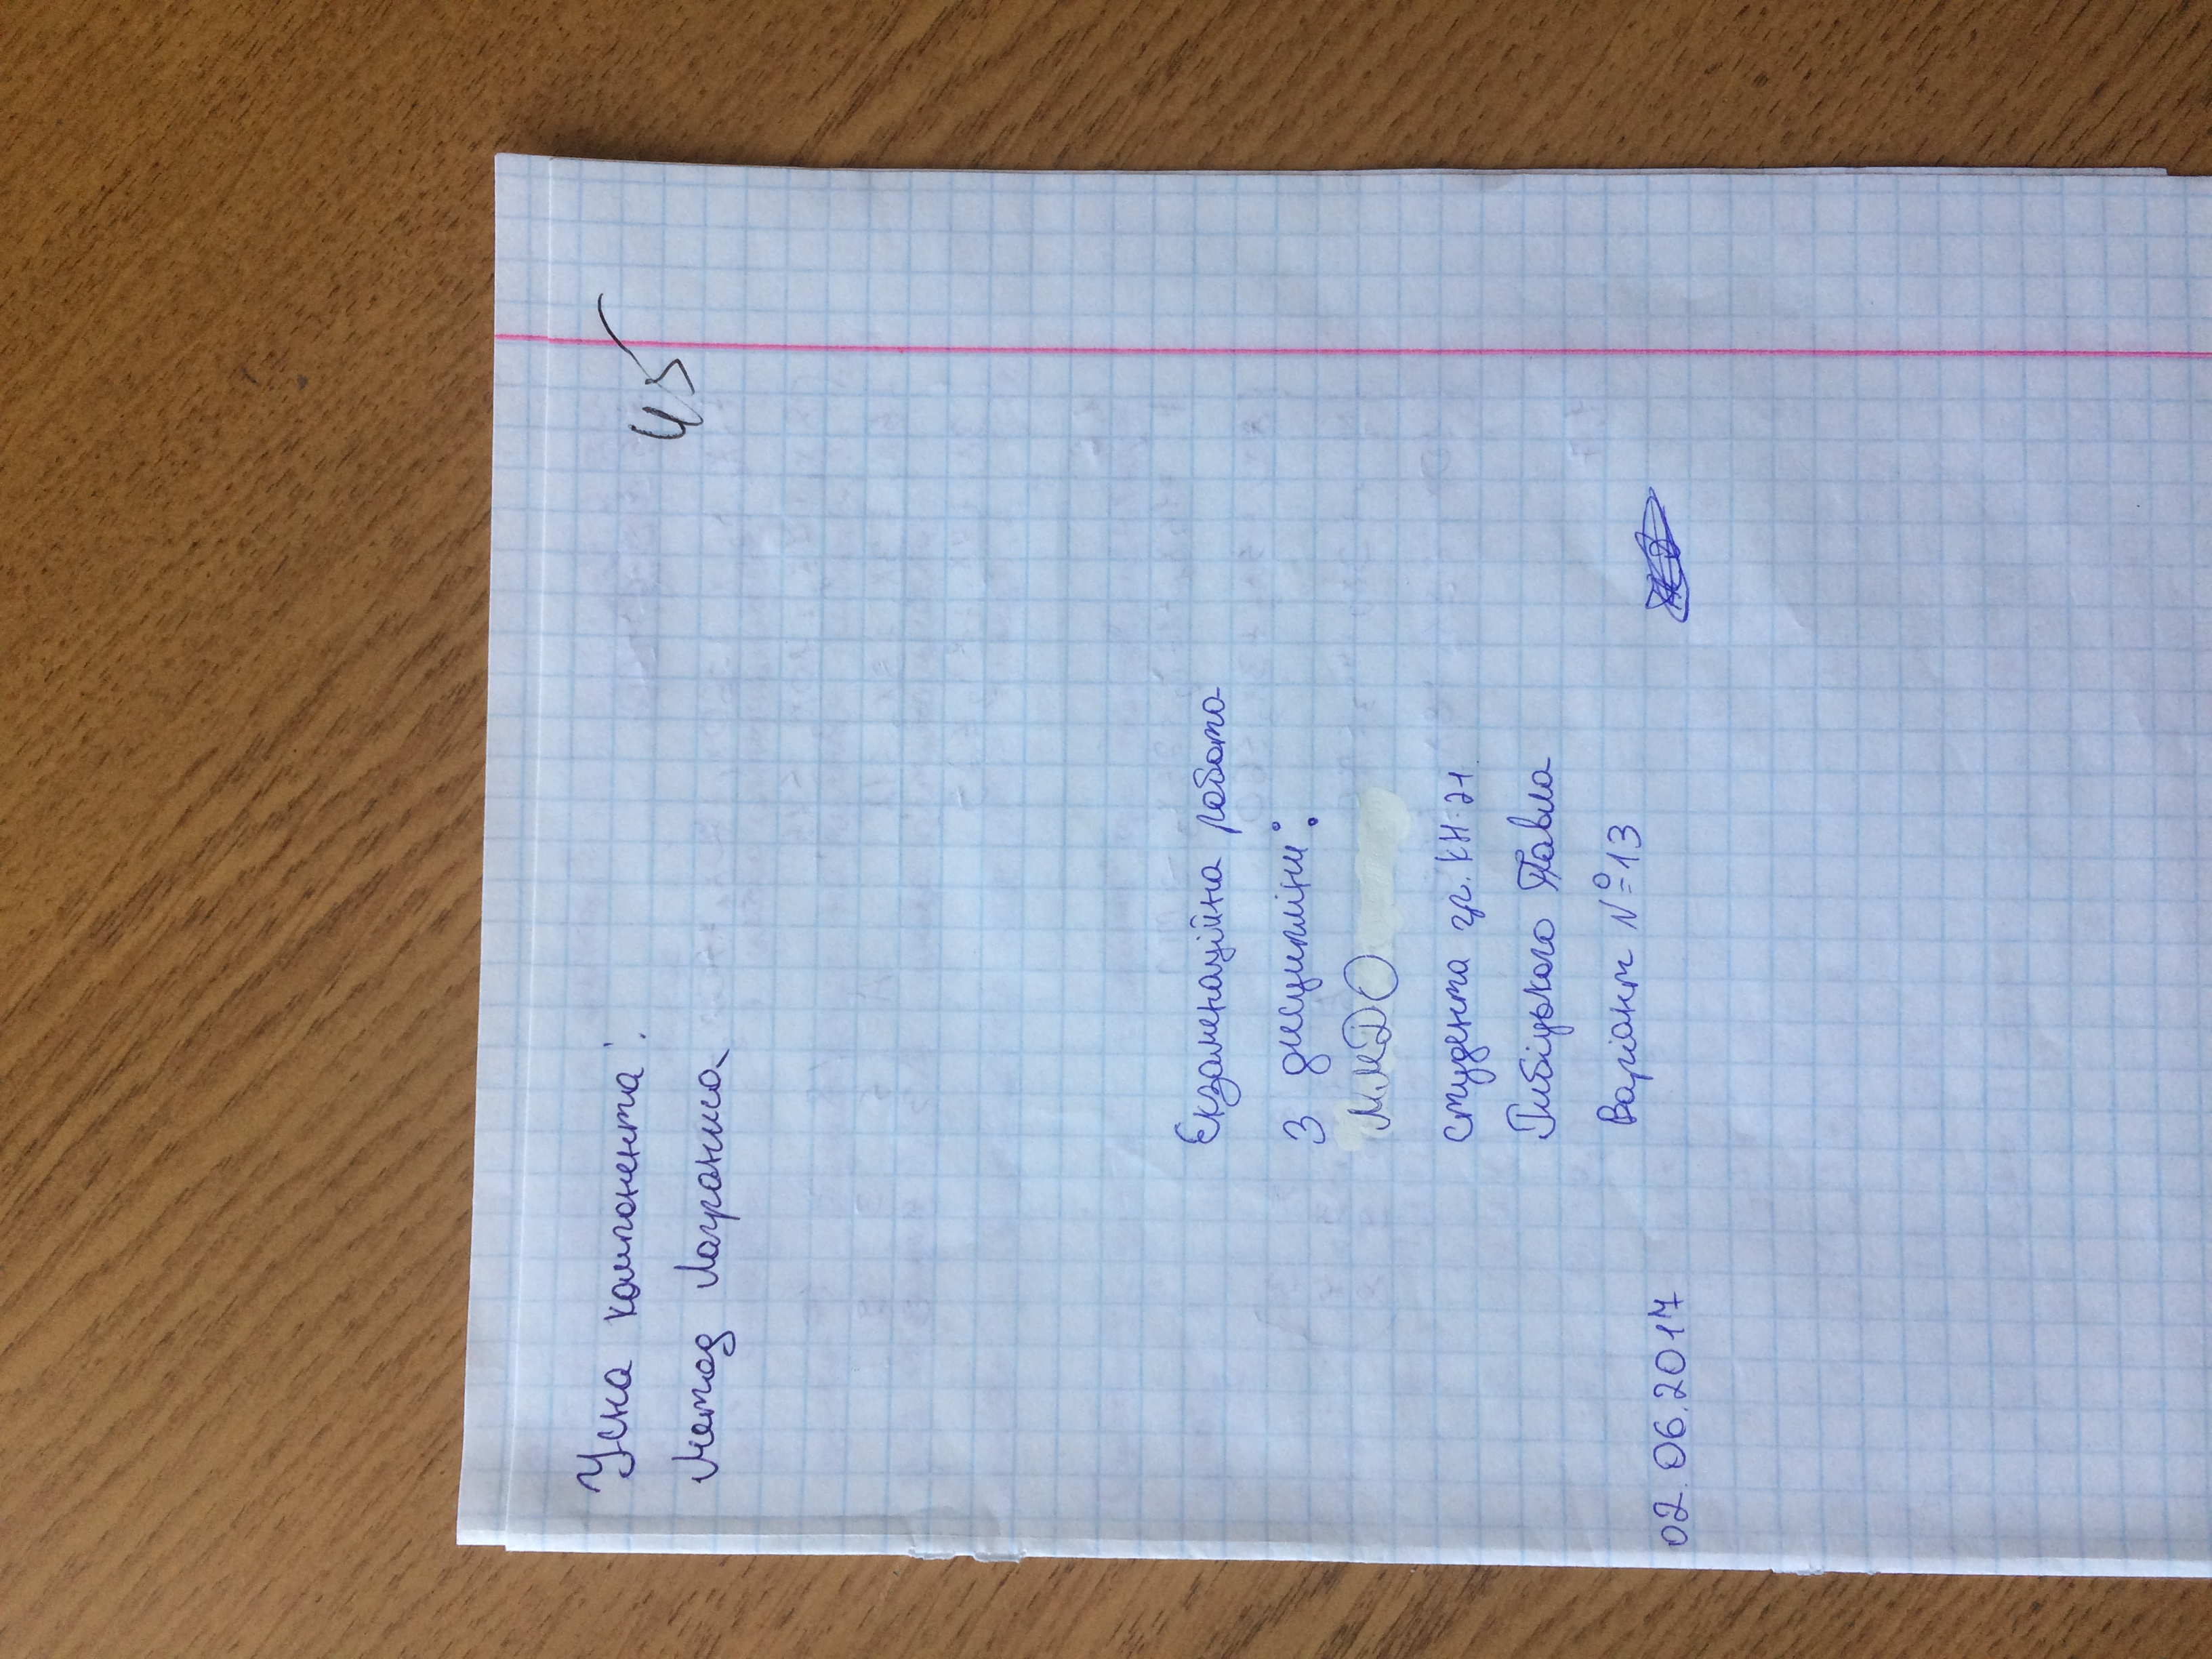 Усна компонента:
45
Метод Лагранжа
Екзаменаційна робота
з дисципліни:
ММДО
студента гр. КН-21
Гибіцького Павла
Варіант №13
02.06.2017